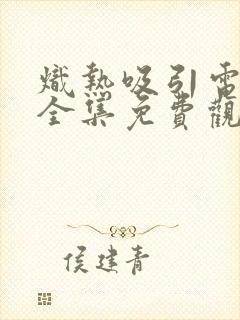 熾熱吸引電
全集免費觀
侯建青